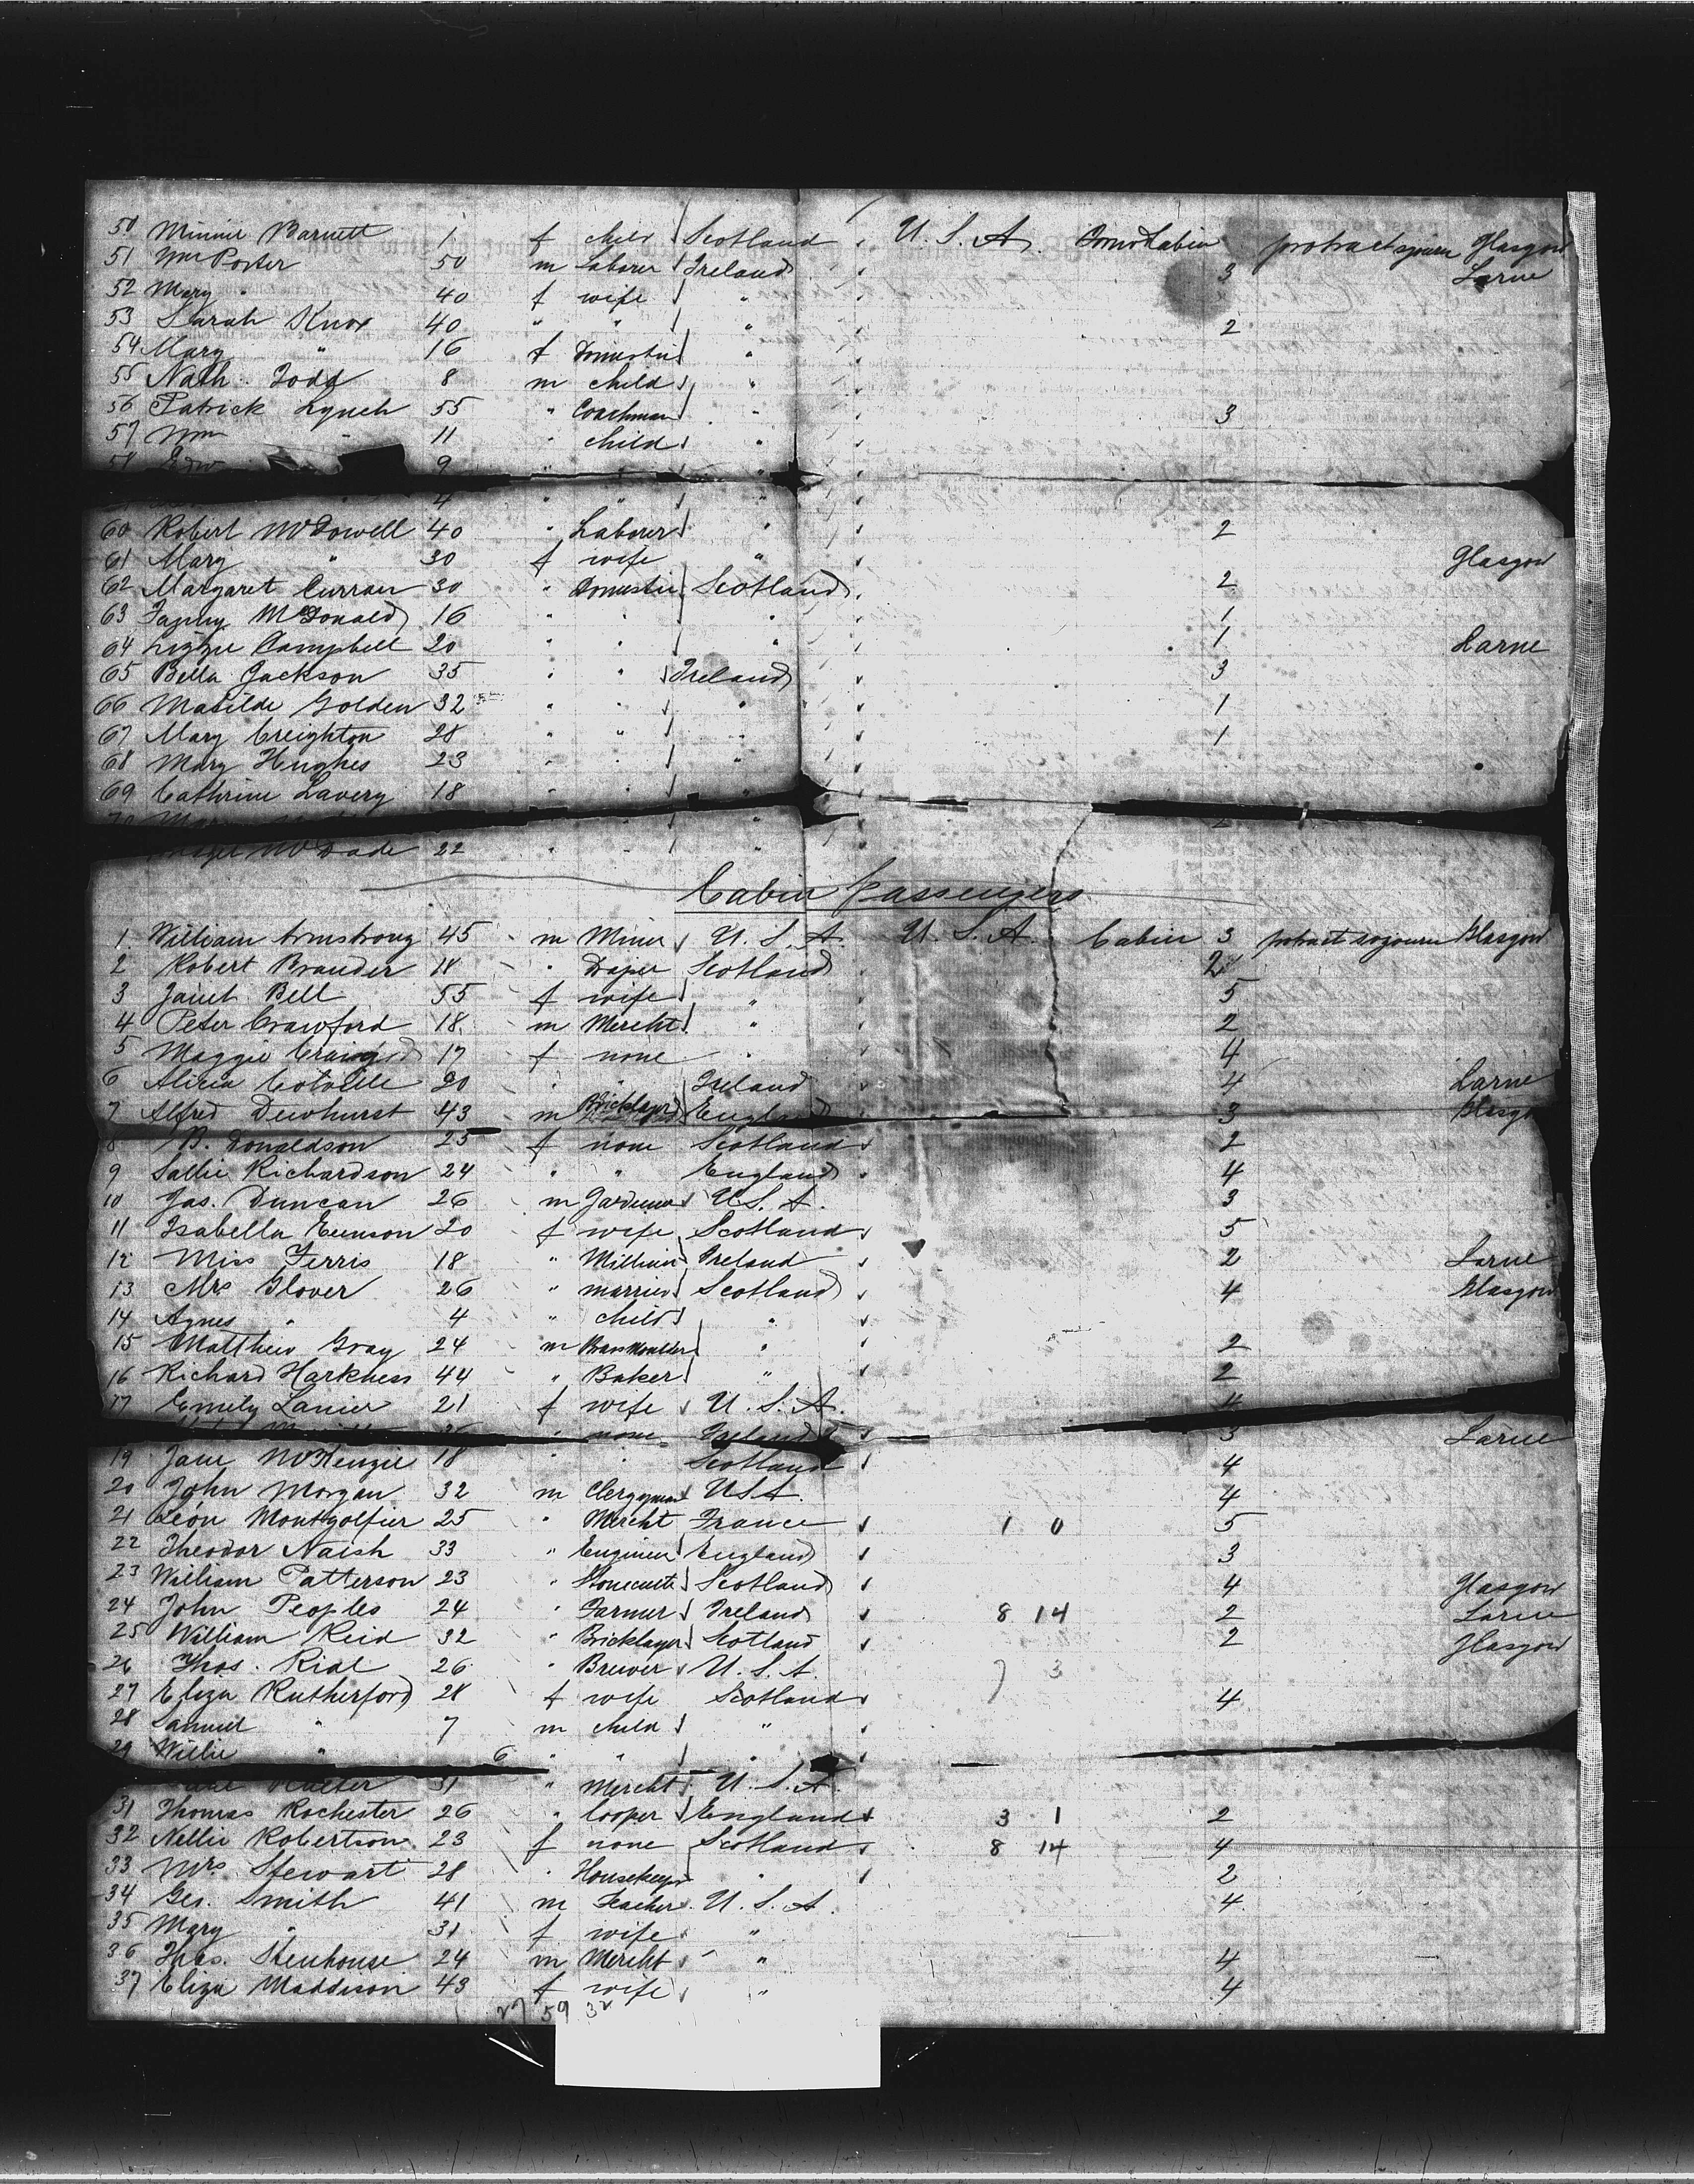 50 Minnie Barnett 1 f child Scotland U.S.A. protract sojourn Glasgow
51 Wm Porter 50 m Laborer Ireland 3 Larne
52 Mary " 40 f wife "
53 Sarah Knox 40 " " " 2
54 Mary " 16 f Domestic "
55 Nath. Todd 8 m child "
56 Patrick Lynch 55 " Coachman " 3
57 Wm " 11 " child "
58 Edw 9 " " "
" 4 " " "
60 Robert McDowell 40 " Laborer " 2
61 Mary " 30 f wife " Glasgow
62 Margaret Curran 30 " Domestic Scotland 2
63 McDonald 16 " " " 1
64 Lizzie Campbell 20 " " " 1 Larne
65 Bella Jackson 35 " " Ireland 3
66 Matilda Golden 32 " " " 1
67 Mary Creighton 28 " " " 1
68 Mary Hughes 23 " " "
69 Cathrine Lavery 18 " " "
70 " " "
McDade 22 " " "
Cabin Passengers
1. William Armstrong 45 m Miner U.S.A. U.S.A. Cabin 3 protract sojourn Glasgow
2 Robert Brander 18 " Draper Scotland 2
3 Janet Bell 55 f wife " 5
4 Peter Crawford 18 m Mercht " 2
5 Maggie 17 f none " 4
6 Alicia Colville 20 " " Ireland 4 Larne
7 Alfred Dewhurst 43 m Bricklayer England 3 Glasgow
8 B. Donaldson 25 f none Scotland 2
9 Sallie Richardson 24 " " England 4
10 Jas. Duncan 26 m Gardener U.S.A. 3
11 Isabella Eunson 20 f wife Scotland 5
12 Miss Ferris 18 " Milliner Ireland 2 Larne
13 Mrs Glover 26 " married Scotland 4 Glasgow
14 Agnes " 4 " child "
15 Matthew Gray 24 m Brassmoulder " 2
16 Richard Harkness 44 " Baker " 2
17 Emily Lanier 21 f wife U.S.A. 4
" none Ireland 3 Larne
19 Jane McKenzie 18 " " Scotland 4
20 John Morgan 32 m Clergyman U.S.A. 4
21 Léon Montgolfier 25 " Mercht France 1 0 5
22 Theodor Naish 33 " Engineer England 3
23 William Patterson 23 " Stonecutter Scotland 4 Glasgow
24 John Peoples 24 " Farmer Ireland 8 14 2 Larne
25 William Reid 32 " Bricklayer Scotland 2 Glasgow
26 Thos. Rial 26 " Brewer U.S.A. 7 3
27 Eliza Rutherford 28 f wife Scotland 4
28 Samuel " 7 m child "
29 Willie " 6 " " "
31 " Mercht U.S.A.
31 Thomas Rochester 26 " Cooper England 3 1 2
32 Nellie Robertson 23 f none Scotland 8 14 4
33 Mrs. Stewart 28 " Housekeeper " 2
34 Geo. Smith 41 m Teacher U.S.A. 4
35 Mary " 31 f wife "
36 Thos. Stenhouse 24 m Mercht " 4
37 Eliza Maddison 43 f wife " 4
27 59 32